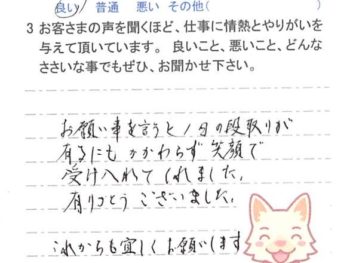 良い 普通 悪い その他(
3 お客さまの声を聞くほど、仕事に情熱とやりがいを
与えて頂いています。 良いこと、悪いこと、どんな
ささいな事でもぜひ、お聞かせ下さい。
お願い事を言うと1日の段取りが
有るにもかかわらず笑顔で
受け入れてくれました。
有りがとうございました。
これからも宜しくお願いします